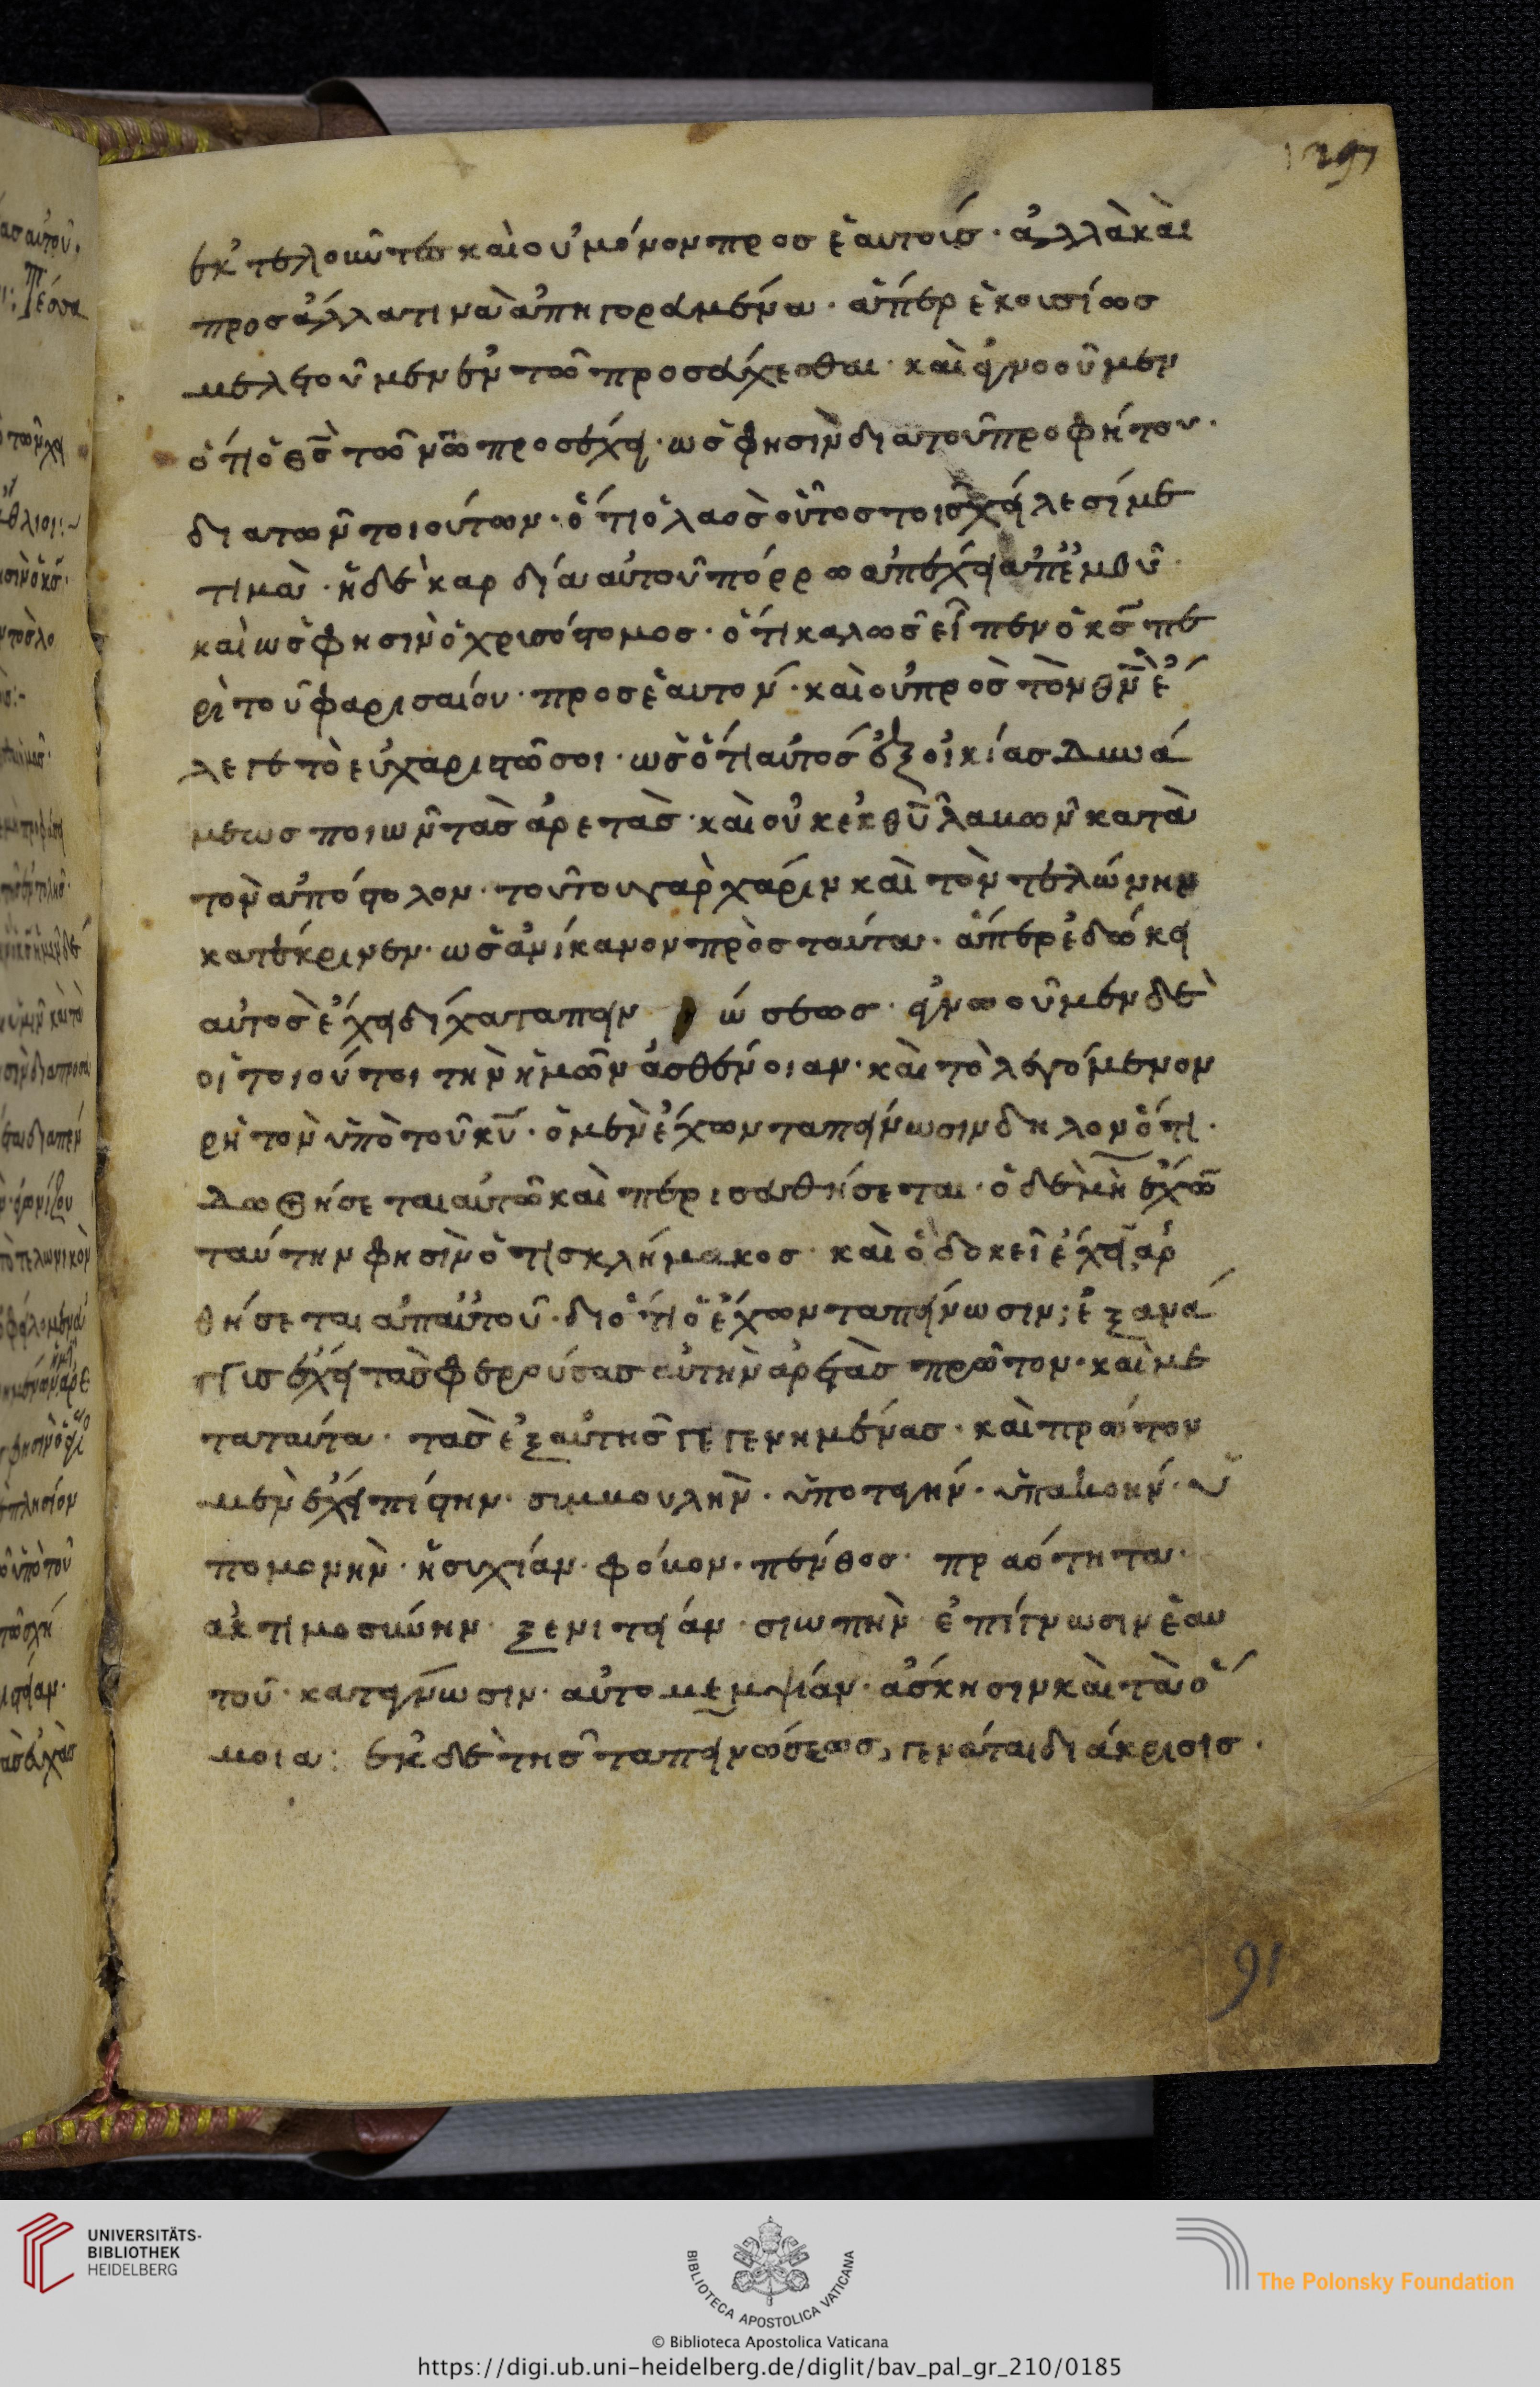 197
ἐκτελοῦντες καὶ οὐ μόνον προσ ἑαυτοὺς· ἀλλὰ καὶ
προσ ἄλλα τινὰ ἀπηγορευμένα· ἅπερ ἑκουσίωσ
μελετοῦμεν ἐν τῶ προσεύχεσθαι· καὶ ἀγνοοῦμεν
ὅτι ὁ θσ τῶ νῶ προσέχει· ὡς φησὶν διὰ τοῦ προφήτου·
διὰ τῶν τοιούτων· ὅτι ὁ λαὸς οὗτοσ τοῖς χείλεσί με
τιμᾶ· ἡ δὲ καρδία αὐτοῦ πόρρω ἀπέχει ἀπ' ἐμοῦ·
καὶ ὡς φησὶν ὁ χρυσόστομοσ· ὅτι καλῶς εἶπεν ὁ κς πε
ρὶ τοῦ φαρισαίου· προσ ἑαυτόν· καὶ οὐ πρὸς τὸν θν ἔ
λεγε τὸ εὐχαριστῶ σοι· ὡς ὅτι αὐτός ἐξ οἰκίασ δυνά
μεωσ ποιῶν τὰς ἀρετὰς· καὶ οὐκ ἐκ θυ λαβὼν κατὰ
τὸν ἀπόστολον· τούτου γὰρ χάριν καὶ τὸν τελώνην
κατέκρινεν· ὡς ἀνίκανον πρὸσ ταῦτα· ἅπερ ἐδόκει
αὐτὸς ἔχει δίχα ταπειν ώσεωσ· ἀγνοοῦμεν δὲ
οἱ τοιοῦτοι τὴν ἡμῶν ἀσθένοιαν· καὶ τὸ λεγόμενον
ρητὸν ὑπὸ τοῦ κυ· ὁ μὲν ἔχων ταπείνωσιν δηλονότι·
δωθήσεται αὐτῶ καὶ περισευθήσεται· ὁ δὲ μὴ ἔχων
ταύτην φησὶν ὅτι σκλήμακοσ· καὶ ὃ δοκεῖ ἔχειν, ἀρ
θήσεται ἀπ' αὐτοῦ· διότι ὁ ἔχων ταπείνωσιν; ἐξ ἀνά
γκισ ἔχει τὰς φερούσασ αὐτὴν ἀρετὰς πρῶτον· καὶ με
τὰ ταῦτα· τὰς ἐξ αὐτῆς γεγενημένασ· καὶ πρῶτον
μὲν ἔχει πίστην· συμβουλὴν· ὑποταγήν· ὑπακοήν· ὑ
πομονὴν· ἡσυχίαν· φόβον· πένθοσ· πραότητα·
ἀκτιμοσύνην· ξενιτείαν· σιωπὴν· ἐπίγνωσιν ἑαυ
τοῦ· κατάγνωσιν· αὐτομεμψίαν· ἄσκησιν καὶ τὰ ὅ
μοια: ἐκ δὲ τῆς ταπεινώσεωσ, γεννᾶται διάκρισισ·
91
UNIVERSITÄTS-
BIBLIOTHEK
HEIDELBERG
BIBLIOTECA APOSTOLICA VATICANA
The Polonsky Foundation
© Biblioteca Apostolica Vaticana
https://digi.ub.uni-heidelberg.de/diglit/bav_pal_gr_210/0185